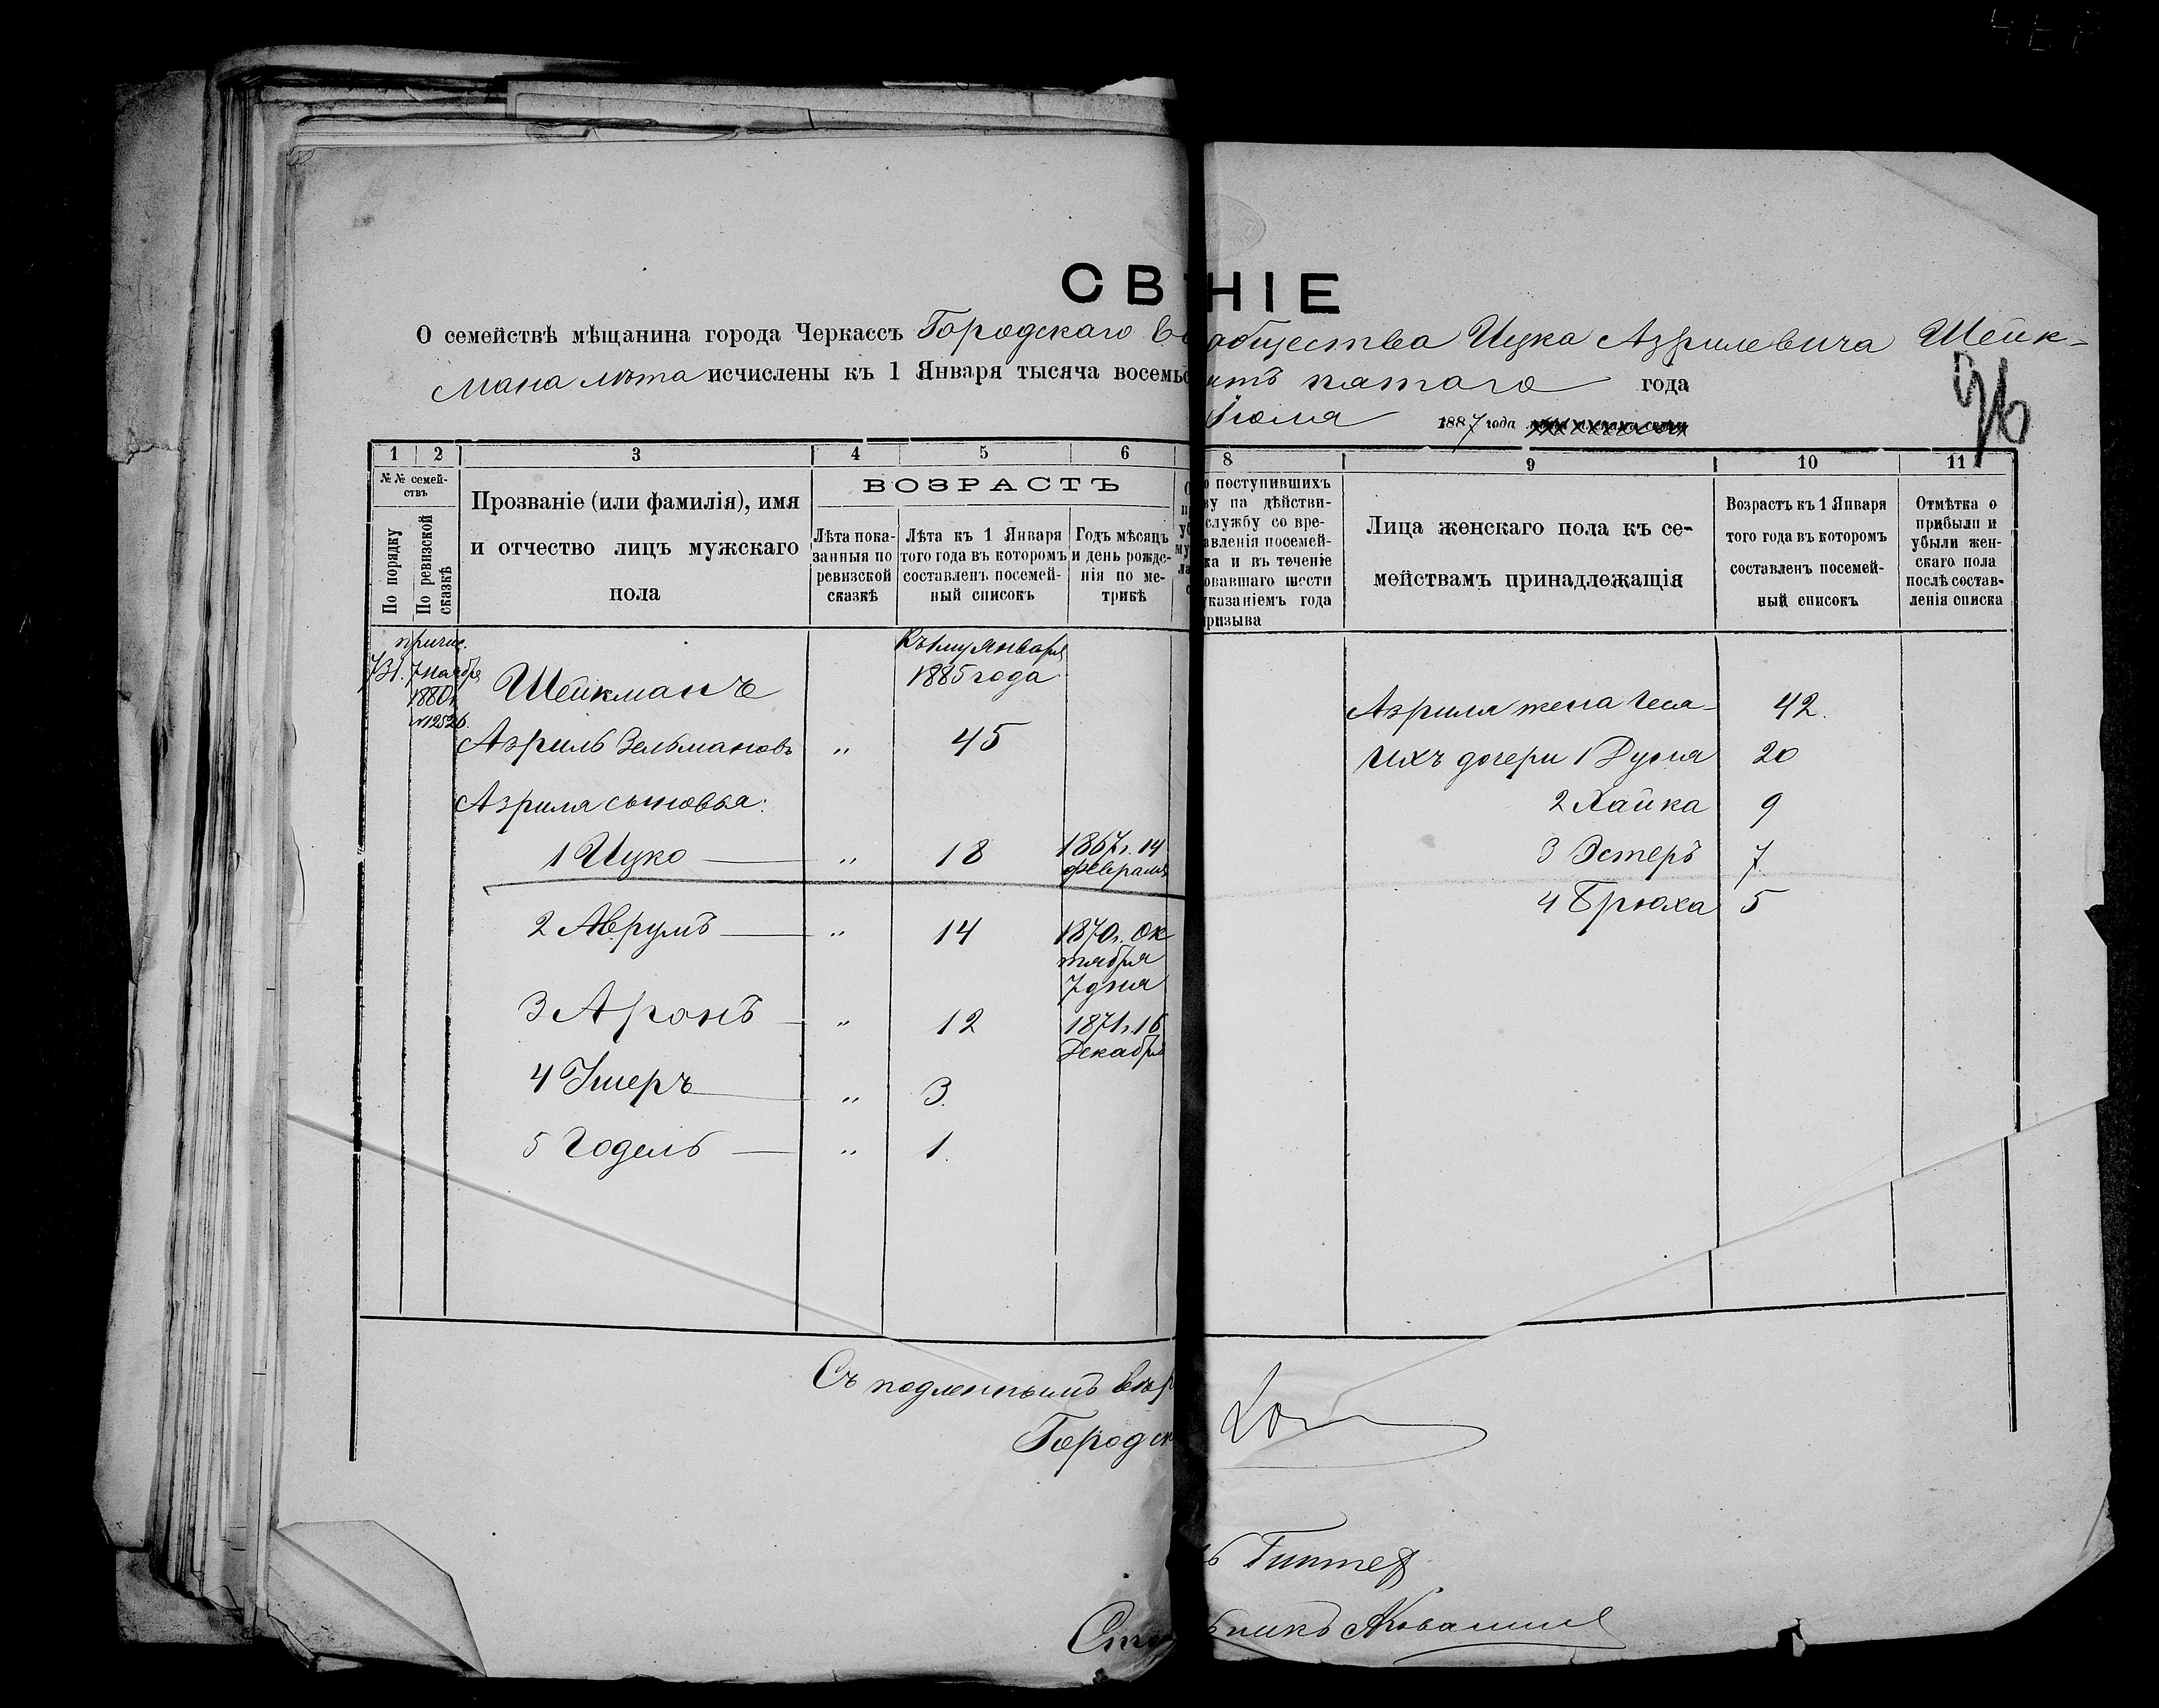 СВ НІЕ
О семействѣ мѣщанина города Черкассъ Городскаго общества Ицка Азрилевича Шейк-
мана лѣта исчислены къ 1 Января тысяча восемьс пятаго года
Іюля 1887 года
96
1 2 3 4 5 6 8 9 10 11
№№ семей-
ствъ
По порядку
По ревизской
сказкѣ
Прозваніе (или фамилія), имя
и отчество лицъ мужскаго
пола
ВОЗРАСТЪ
Лѣта пока-
занныя по
ревизской
сказкѣ
Лѣта къ 1 Января
того года въ которомъ
составленъ посемей-
ный списокъ
Годъ мѣсяцъ
и день рожде-
нія по ме-
трикѣ
поступившихъ
ву на дѣйстви-
службу со вре-
авленія посемей-
ка и въ теченіе
овавшаго шести
указаніемъ года
ризыва
Лица женскаго пола къ се-
мействамъ принадлежащія
Возрастъ къ 1 Января
того года въ которомъ
составленъ посемей-
ный списокъ
Отмѣтка о
прибыли и
убыли жен-
скаго пола
послѣ состав-
ленія списка
731. причис.
7 ноября
1880 г.
№12526.
Къ 1му Января
1885 года
Шейкманъ
Азриль Зельмановъ " 45
Азрила сыновья:
1 Ицко " 18 1867 г. 14
февраля
2 Аврумъ " 14 1870 г. Ок
тября
7 дня
3 Аронъ " 12 1871 г. 16
Декабря
4 Ушеръ " 3.
5 Годель " 1.
Азриля жена Чеся 42.
Ихъ дочери 1 Дуня 20
2 Хайка 9
3 Эстеръ 7
4 Брюха 5
Съ подленнымъ вѣр
Городск